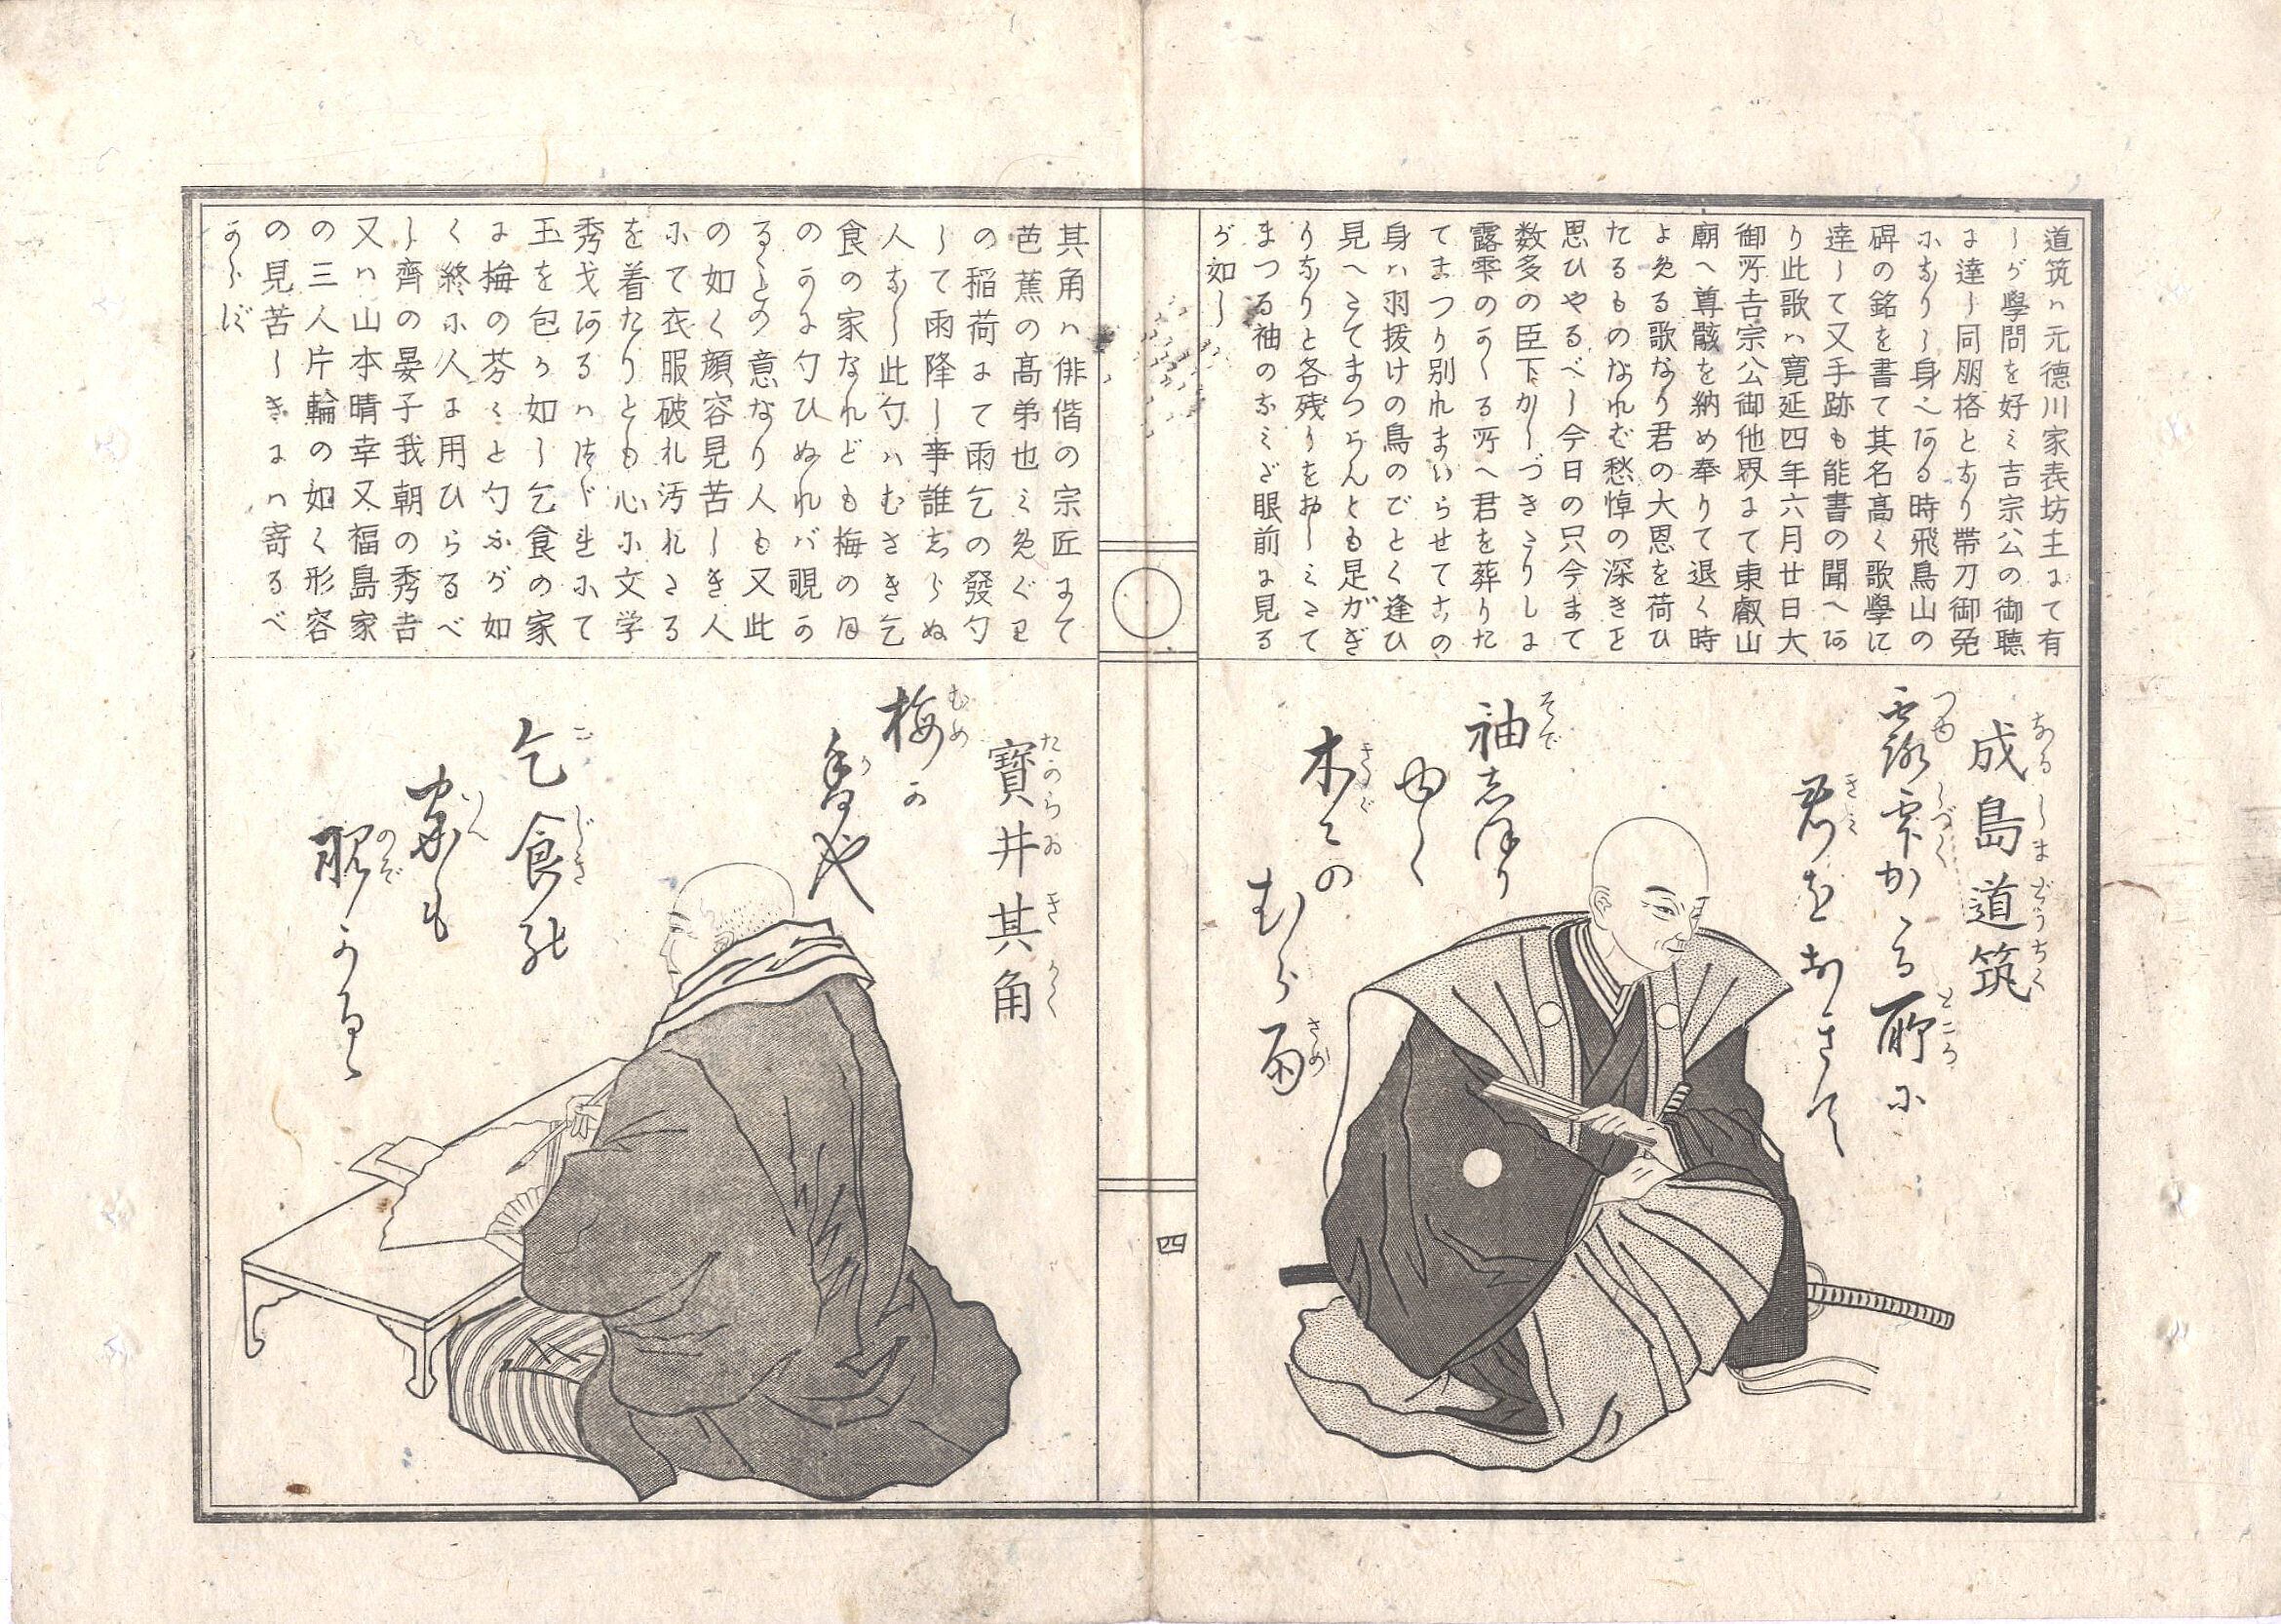 道筑ハ元德川家表坊主にて有
しが學問を好ミ吉宗公の御聽
に達し同朋格となり帶刀御免
になりし身へある時飛鳥山の
碑の銘を書て其名高く歌學に
達して又手跡も能書の聞へあ
り此歌ハ寛延四年六月廿日大
御所吉宗公御他界にて東叡山
廟へ尊骸を納め奉りて退く時
よめる歌なり君の大恩を荷ひ
たるものなれむ愁悼の深きを
思ひやるべし今日の只今まて
数多の臣下かしづきたりしに
露雫のかゝる所へ君を葬りた
てまつり別れまいらせてその
身ハ羽拔けの鳥のごとく逢ひ
見へたてまつらんとも足がぎ
りなりと各残りをおしミたて
まつる袖のなミだ眼前に見る
が如し
成島道筑
なるしまどうちく
露雫かゝる所に
つゆしづくところ
君をおきすて
きミ
袖志ほり
そで
ゆく
木〻の
きゞ
むら雨
さめ
四
其角ハ俳偕の宗匠にて
芭蕉の高弟也ミめぐり
の稲荷にて雨乞の發句
して雨降し事誰志らぬ
人なし此句ハむさき乞
食の家なれども梅の日
のかに匂ひぬれバ覗か
るゝとの意なり人も又此
の如く顔容見苦しき人
にて衣服破れ汚れたる
を着たりとも心に文学
秀才あるハ法ぶれにて
玉を包ゝ如し乞食の家
に梅の芬〻と匂ふが如
く終に人に用ひらるべ
し齊の晏子我朝の秀吉
又ハ山本晴幸又福島家
の三人片輪の如く形容
の見苦しきにハ寄るべ
からず
寶井其角
たからおきかく
梅か
むめ
香や
か
乞食の
こじき
家も
いへ
覗かるゝ
のぞ